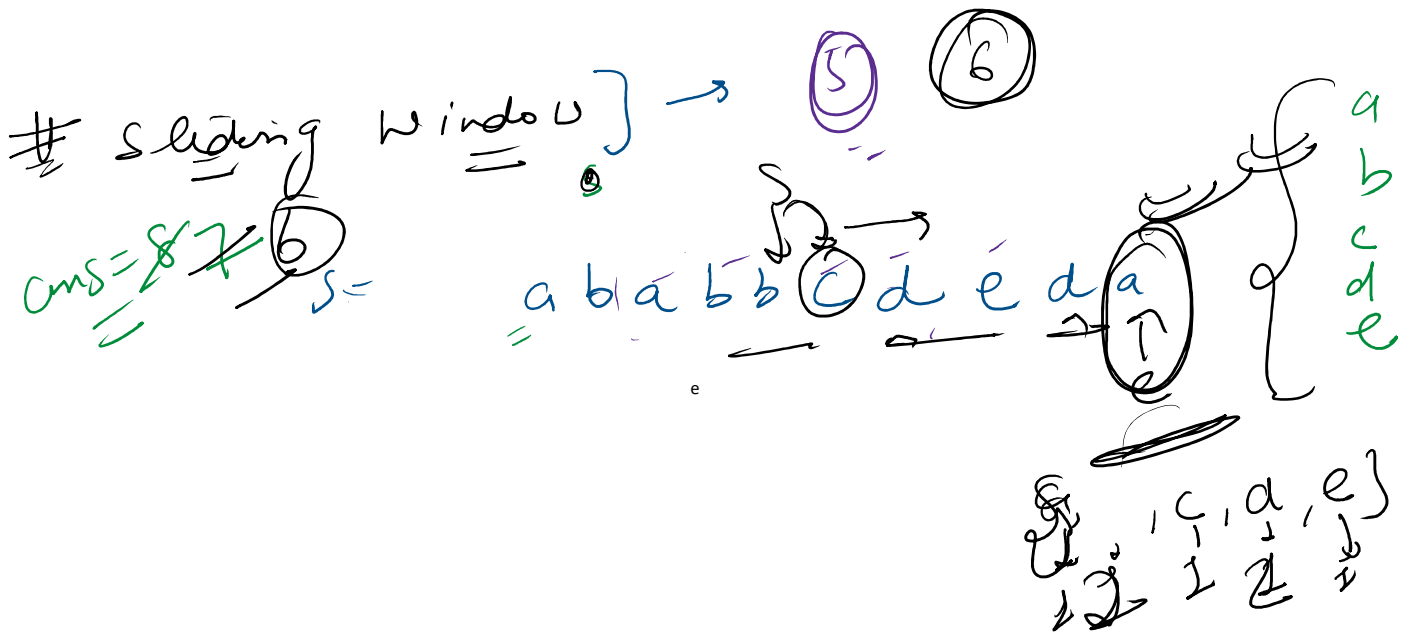 5 6
# Sliding Window ] →
a
b
c
d
e
ans = 8 7 6
s =
S
a b a b b c d e d a
e
e
, c, d, e }
1 2 1 2 1